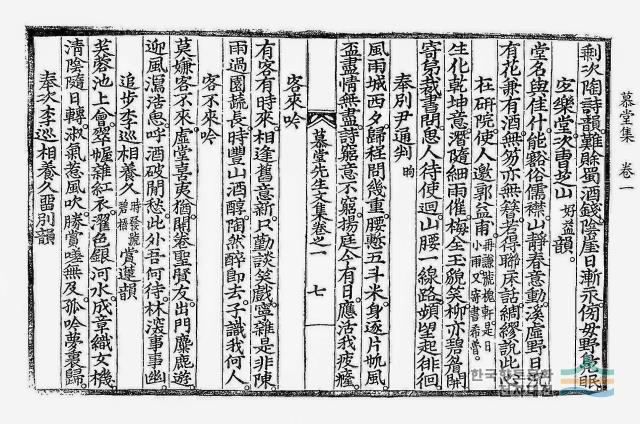 慕堂集 卷一
剩次陶詩韻。難賖蜀酒錢。陰崖日漸永。傍母野鳧眠。
空樂堂次曺芝山 好益 韻。
堂名與佳什。能豁俗儒襟。山靜春意動。溪虛野日
有花兼有酒。無勿亦無簪。若得聯床話。綢繆說此
在研院。使人邀郭益甫
生化乾坤意。潛隨細雨催。梅全玉貌笑。柳亦碧眉開。
裁書問。思人待使迴。山腰一線路。頻望起徘徊。
奉別尹通判 昫
風雨城西夕。歸程問幾重。腰慙五斗米。身逐片帆風。
盃盡情無盡。詩窮意不窮。揚庭今有日。應活我疲癃。
慕堂先生文集卷之一 七
客來吟
有客有時來。相逢舊意新。只勤談笑戲。寧雜是非陳。
雨過園蔬長。時豐山酒醇。陶然醉卽去。子識我何人。
客不來吟
莫嫌客不來。虛堂喜夷猶。開卷聖賢友。出門麋鹿遊。
迎風瀉浩思。呼酒破閑愁。此外吾何待。林深事事幽
追步李巡相養久 時發號碧梧 賞蓮韻
芙蓉池上會。翠幄雜紅衣。濯色銀河水。成章織女機。
淸陰隨日轉。淑氣惹風吹。勝賞嗟無及。孤吟夢裏歸。
奉次李巡相養久留別韻